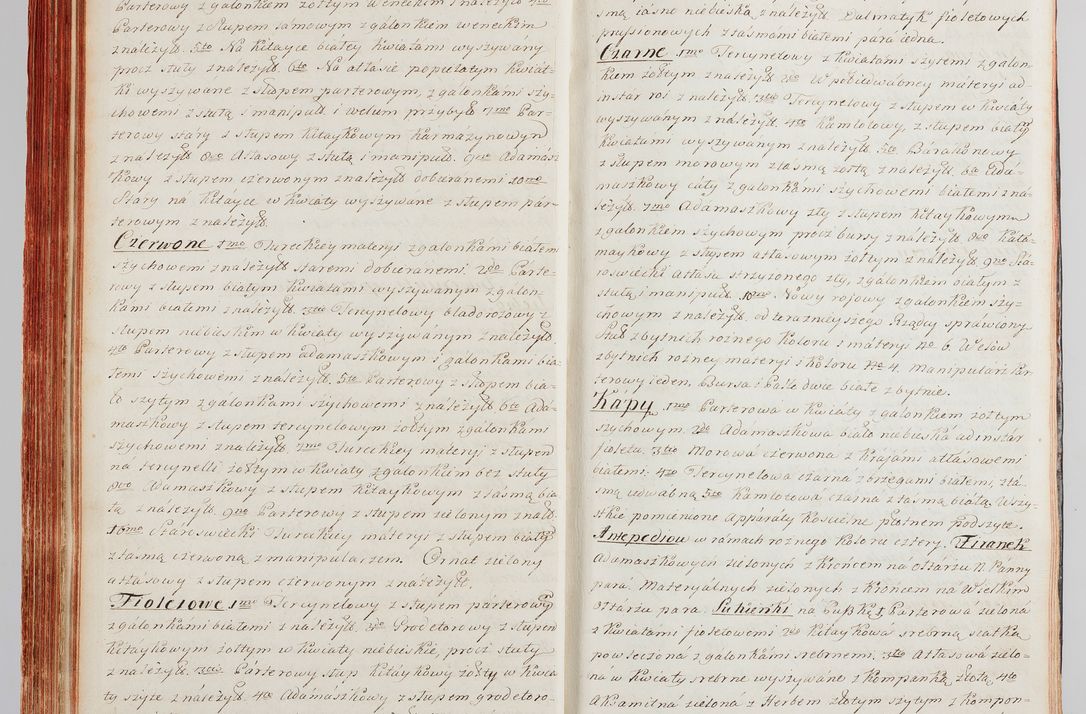 Parterowy z galonkiem żołtym weneckim z należyt: 4to
Parterowy z słupem samowym z galonkiem weneckim
z należyt. 5to Na kitayce białey kwiatami wyszywany
procz stuły z należyt 6to Na attasie popielatym kwiat-
ki wyszywane z słupem parterowym, z galonkami szy-
chowemi z stułą i manipuł: i welum przybył 7mo Par-
terowy stary z słupem kitaykowym karmazynowym
z należyt 8vo Attasowy z stułą i manipuł. 9no Adamasz-
kowy z słupem czerwonym z należyt dobieranemi 10mo
Stary na kitayce w kwiaty wyszywane z słupem par-
terowym z należyt.
Czerwone 1mo Tureckiey materyi z galonkami białemi
szychowemi z należyt staremi dobieranemi. 2do Parte-
rowy z słupem białym kwiatami wyszywanym z galon-
kami białemi z należyt. 3tio Tercynelowy bladorożowy z
słupem niebieskim w kwiaty wyszywanym z należyt
4to Parterowy z słupem adamaszkowym i galonkami bia-
łemi szychowemi z należyt. 5to Parterowy z słupem bia-
ło szytym z galonkami szychowemi z należyt 6to Ada-
maszkowy z słupem tercynelowym żołtym z galonkami
szychowemi z należyt. 7mo Tureckiey materyi z słupem
na tercynelli żołtym w kwiaty z galonkiem bez stuły
8vo Adamaszkowy z słupem kitaykowym z taśmą bia-
łą z należyt. 9no Parterowy z słupem zielonym z należ
10mo Staroswiecki Tureckiey materyi z słupem białym
z taśmą czerwoną z manipularzem. Ornat zielony
attasowy z słupem czerwonym z należyt.
Fioletowe 1mo Tercynelowy z słupem parterowym
z galonkami białemi z należyt. 2do Prodetorowy z słupem
kitaykowym żołtym w kwiaty niebieskie, procz stuły
z należyt. 3tio Parterowy słup kitaykowy żołty w kwia-
ty szyte z należyt 4to Adamaszkowy z słupem grodetoro-
śmą iasno niebieską z należyt. Dalmatyk fioletowych
z taśmami białemi para iedna.
Czarne 1mo Tercynelowy z kwiatami szytemi z galon-
kiem żołtym z należyt 2do W połiedwabney materyi ad
instar z należyt. 3tio Tercynelowy z słupem w kwiaty
wyszywanym z należyt. 4to Kamlotowy, z słupem białym
kwiatami wyszywanym z należyt. 5to Barakanowy
z słupem morowym z taśmą żołtą z należyt. 6to Ada-
maszkowy cały z galonkami szychowemi białemi z na-
leżyt. 7mo Adamaszkowy zły z słupem kitaykowym
z galonkiem szychowym procz bursy z należyt. 8vo Kała-
maykowy z słupem attasowym żołtym z należyt 9no Sta-
roswiecki attasu strzyżonego zły, z galonkiem białym z
stułą i manipuł. 10mo Nowy rojowy z galonkiem szy-
chowym z należyt. od teraznieyszego Rządcy sprawiony
Stuł zbytnich rożnego koloru i materyi No 6. Welow
zbytnich rozney materyi i koloru No 4. Manipularz par-
terowy ieden. Bursa i Palle dwie białe zbytnie.
Kapy 1mo Parterowa w kwiaty z galonkiem żołtym
szychowym. 2do Adamaszkowa biało niebieska ad instar
fioletu. 3tio Morowa czerwona z kraiami attasowemi
białemi. 4to Tercynelowa czarna z brzegami białemi, ta-
śmą iedwabną 5to Kamlotowa czarna z taśmą białą. Wszy-
stkie pomienione Apparaty Koscielne płotnem podszyte.
Antepediow w ramach rożnego koloru cztery. Firanek
Adamaszkowych zielonych z kroncem na Ołtarzu N. Panny
para. Materyalnych zielonych z kroncem na Wielkim
Ołtarzu para. Sukienki na Puszkę 1 Parterowa zielona
z kwiatami fioletowemi 2do Kitaykowa srebrną siatką
powleczona z galonkami srebrnemi. 3tio Attasowa zielo-
na w kwiaty srebrne wyszywane z kompenką złotą 4to
Axamitna zielona z Herbem złotym szytym z kompon-